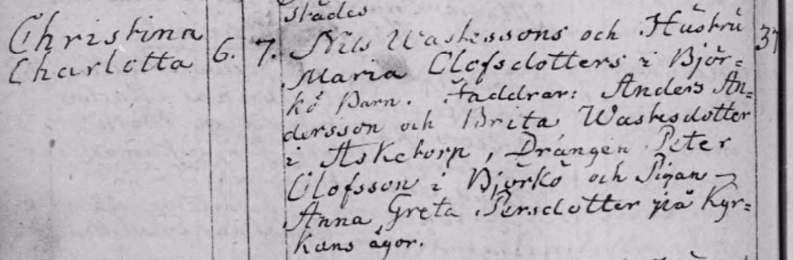 städes
Christina
Charlotta
6.
7.
Nils Wastessons och Hustru
37
Maria Olofsdotters i Björ=
kö Barn. Faddrar: Anders An=
dersson och Brita Wastesdotter
i Asketorp, Drängen Peter
Olofsson i Björkö och Pigan
Anna Greta Persdotter på Kyr=
kans ägor.